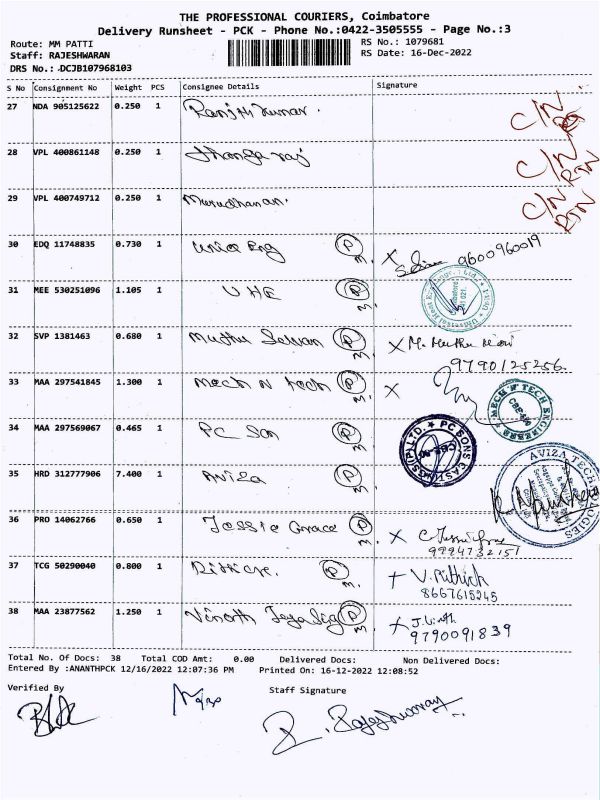 THE PROFESSIONAL COURIERS, Coimbatore
Delivery Runsheet - PCK - Phone No.:0422-3505555 - Page No.:3
Route: MM PATTI
RS No.: 1079681
Staff: RAJESHWARAN
RS Date: 16-Dec-2022
DRS No.: DCJB107968103
S No Consignment No Weight PCS Consignee Details Signature
27 NDA 905125622 0.250 1 Ranjith Kumar. C/N
28 VPL 400861148 0.250 1 Thangaraj C/N RTN
29 VPL 400749712 0.250 1 Murudhanan. C/N RTN
30 EDQ 11748835 0.730 1 Unica Eng P M. X 9600960019
31 MEE 530251096 1.105 1 UHE P M.
32 SVP 1381463 0.680 1 Muthu Selvan P M. X M. Muthu
9790125256.
33 MAA 297541845 1.300 1 Mech N Tech P M. X
MECH 'N' TECH ENGINEERS
34 MAA 297569067 0.465 1 PC Son P M.
PC SONS CASTINGS (P) LTD.
35 HRD 312777906 7.400 1 Aviza P M.
AVIZA TECHNOLOGIES
36 PRO 14062766 0.650 1 Jessie Grace P M. X
9994732151
37 TCG 50290040 0.800 1 P M. V. Rithick
8667615245
38 MAA 23877562 1.250 1 Vinoth P M. X J. Vinoth
9790091839
Total No. Of Docs: 38 Total COD Amt: 0.00 Delivered Docs: Non Delivered Docs:
Entered By :ANANTHPCK 12/16/2022 12:07:36 PM Printed On: 16-12-2022 12:08:52
Verified By
Staff Signature
R. Rajeshwaran